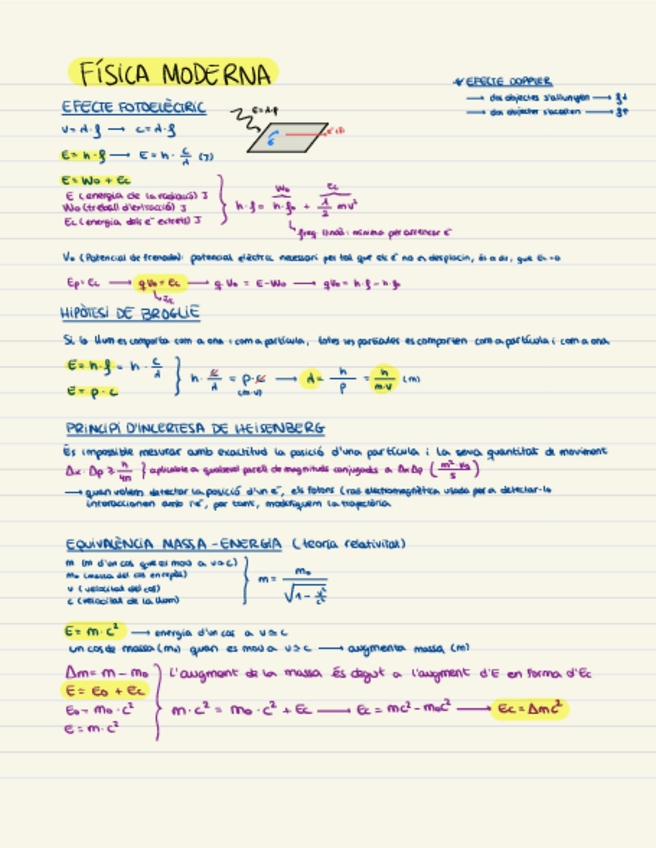 FÍSICA MODERNA
* EFECTE DOPPLER
→ dos objectes s'allunyen → f↓
→ dos objectes s'acosten → f↑
EFECTE FOTOELÈCTRIC
v = λ·f → c = λ·f
E = h·f → E = h · c/λ (J)
E = W₀ + Ec
E (energia de la radiació) J
W₀ (treball d'extracció) J
Ec (energia dels e⁻ extrets) J
W₀ Ec
h·f = h·f₀ + 1/2 mv²
freq. llindar: mínima per arrencar e⁻
V₀ (Potencial de frenada): potencial elèctric necessari per tal que els e⁻ no es desplacin, és a dir, que Ec=0
Ep = Ec → q·V₀ = Ec → q·V₀ = E - W₀ → qV₀ = h·f - h·f₀
HIPÒTESI DE BROGLIE
Si la llum es comporta com a ona i com a partícula, totes les partícules es comporten com a partícula i com a ona.
E = h·f = h · c/λ
E = p·c
h · c/λ = p·c → λ = h/p = h/m·v (m)
(m·v)
PRINCIPI D'INCERTESA DE HEISENBERG
És impossible mesurar amb exactitud la posició d'una partícula i la seva quantitat de moviment
Δx · Δp ≥ h/4π } aplicable a qualsevol parell de magnituds conjugades a Δx Δp (m²·kg/s)
→ quan volem detectar la posició d'un e⁻, els fotons (rad. electromagnètica usada per a detectar-lo
interaccionen amb l'e⁻, per tant, modifiquem la trajectòria
EQUIVALÈNCIA MASSA-ENERGIA (teoria relativitat)
m (m d'un cos que es mou a v≃c)
m₀ (massa del cos en repòs)
v (velocitat del cos)
c (velocitat de la llum)
m = m₀/√(1 - v²/c²)
E = m·c² → energia d'un cos a v≃c
un cos de massa (m₀) quan es mou a v≃c → augmenta massa (m)
Δm = m - m₀
E = E₀ + Ec
E₀ = m₀·c²
E = m·c²
L'augment de la massa és degut a l'augment d'E en forma d'Ec
m·c² = m₀·c² + Ec → Ec = mc² - m₀c² → Ec = Δmc²